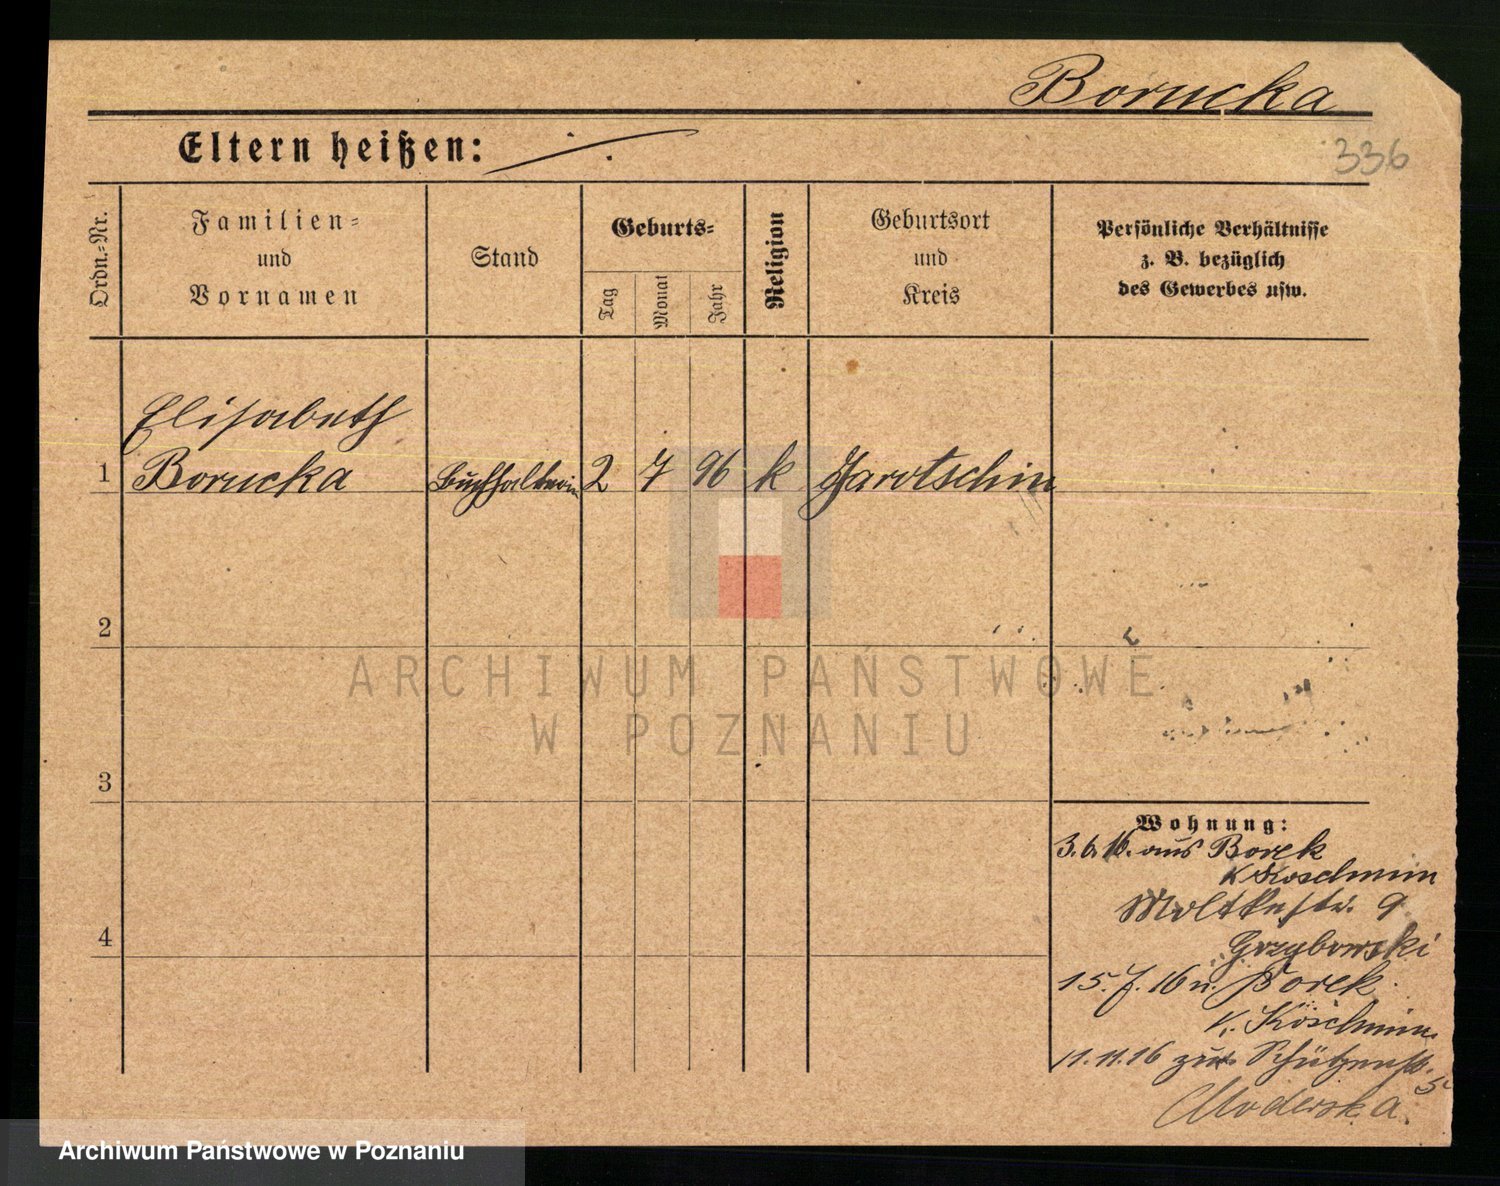 Borucka
336
Eltern heißen: ./.
Ordn.-Nr.
Familien-
und
Vornamen
Stand
Geburts-
Tag
Monat
Jahr
Religion
Geburtsort
und
Kreis
Persönliche Verhältnisse
z. B. bezüglich
des Gewerbes usw.
Elisabeth
1 Borucka Buchhalterin 2 7 96 k Jarotschin
2
3
4
Wohnung:
3.6.16. aus Borek
K Koschmin
Moltkestr. 9
Grzybowski
15.7.16 n. Borek
K. Koschmin
11.11.16 zur Schützenstr.
5
Moderska.
ARCHIWUM PAŃSTWOWE
W POZNANIU
Archiwum Państwowe w Poznaniu